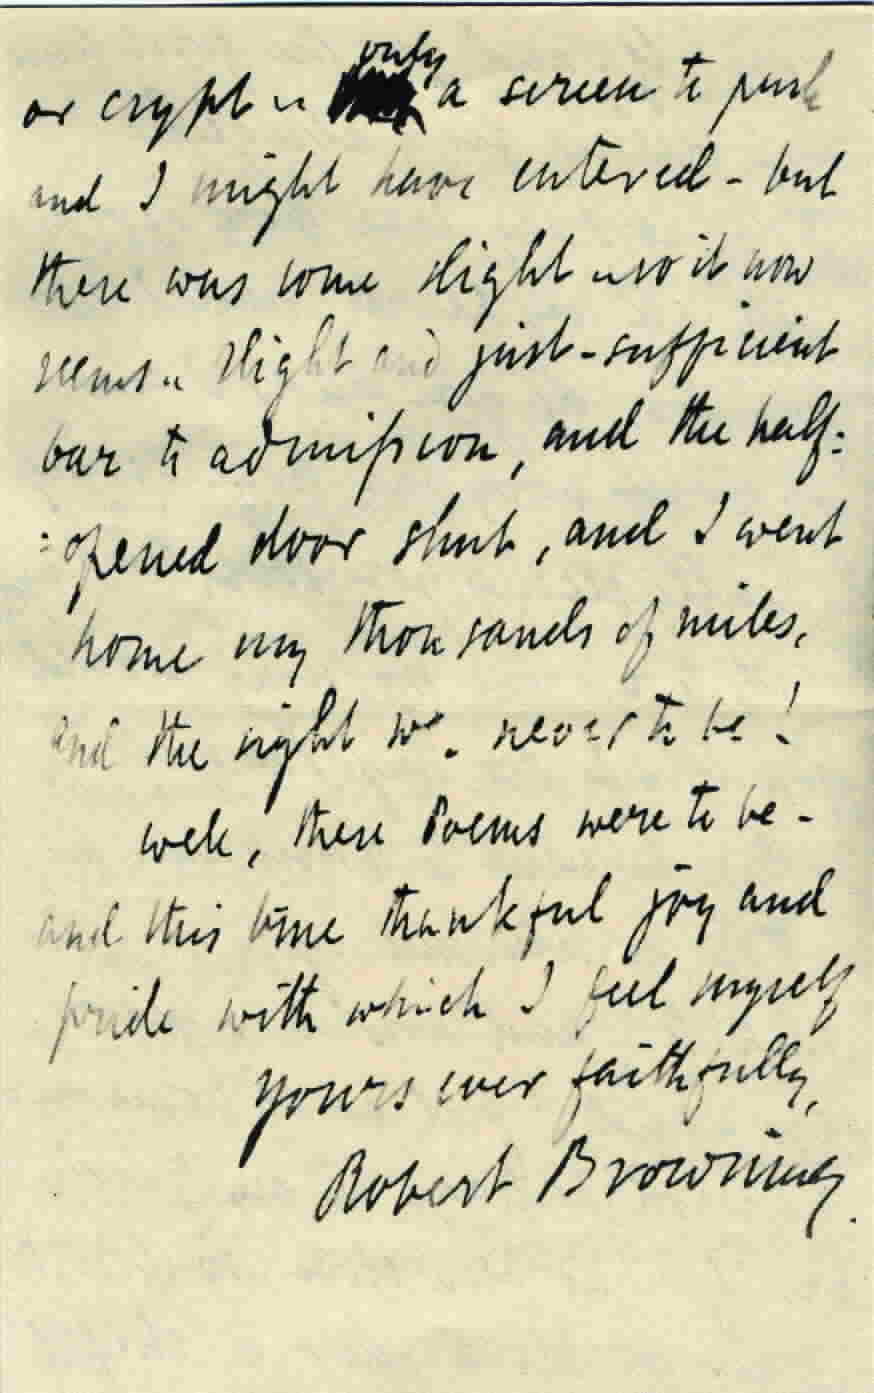 or crypt .. only a screen to push
and I might have entered - but
there was some slight .. so it now
seems .. slight and just-sufficient
bar to admission, and the half:
:opened door shut, and I went
home my thousands of miles,
and the sight was never to be!
Well, these Poems were to be -
and this true thankful joy and
pride with which I feel myself
Yours ever faithfully,
Robert Browning.